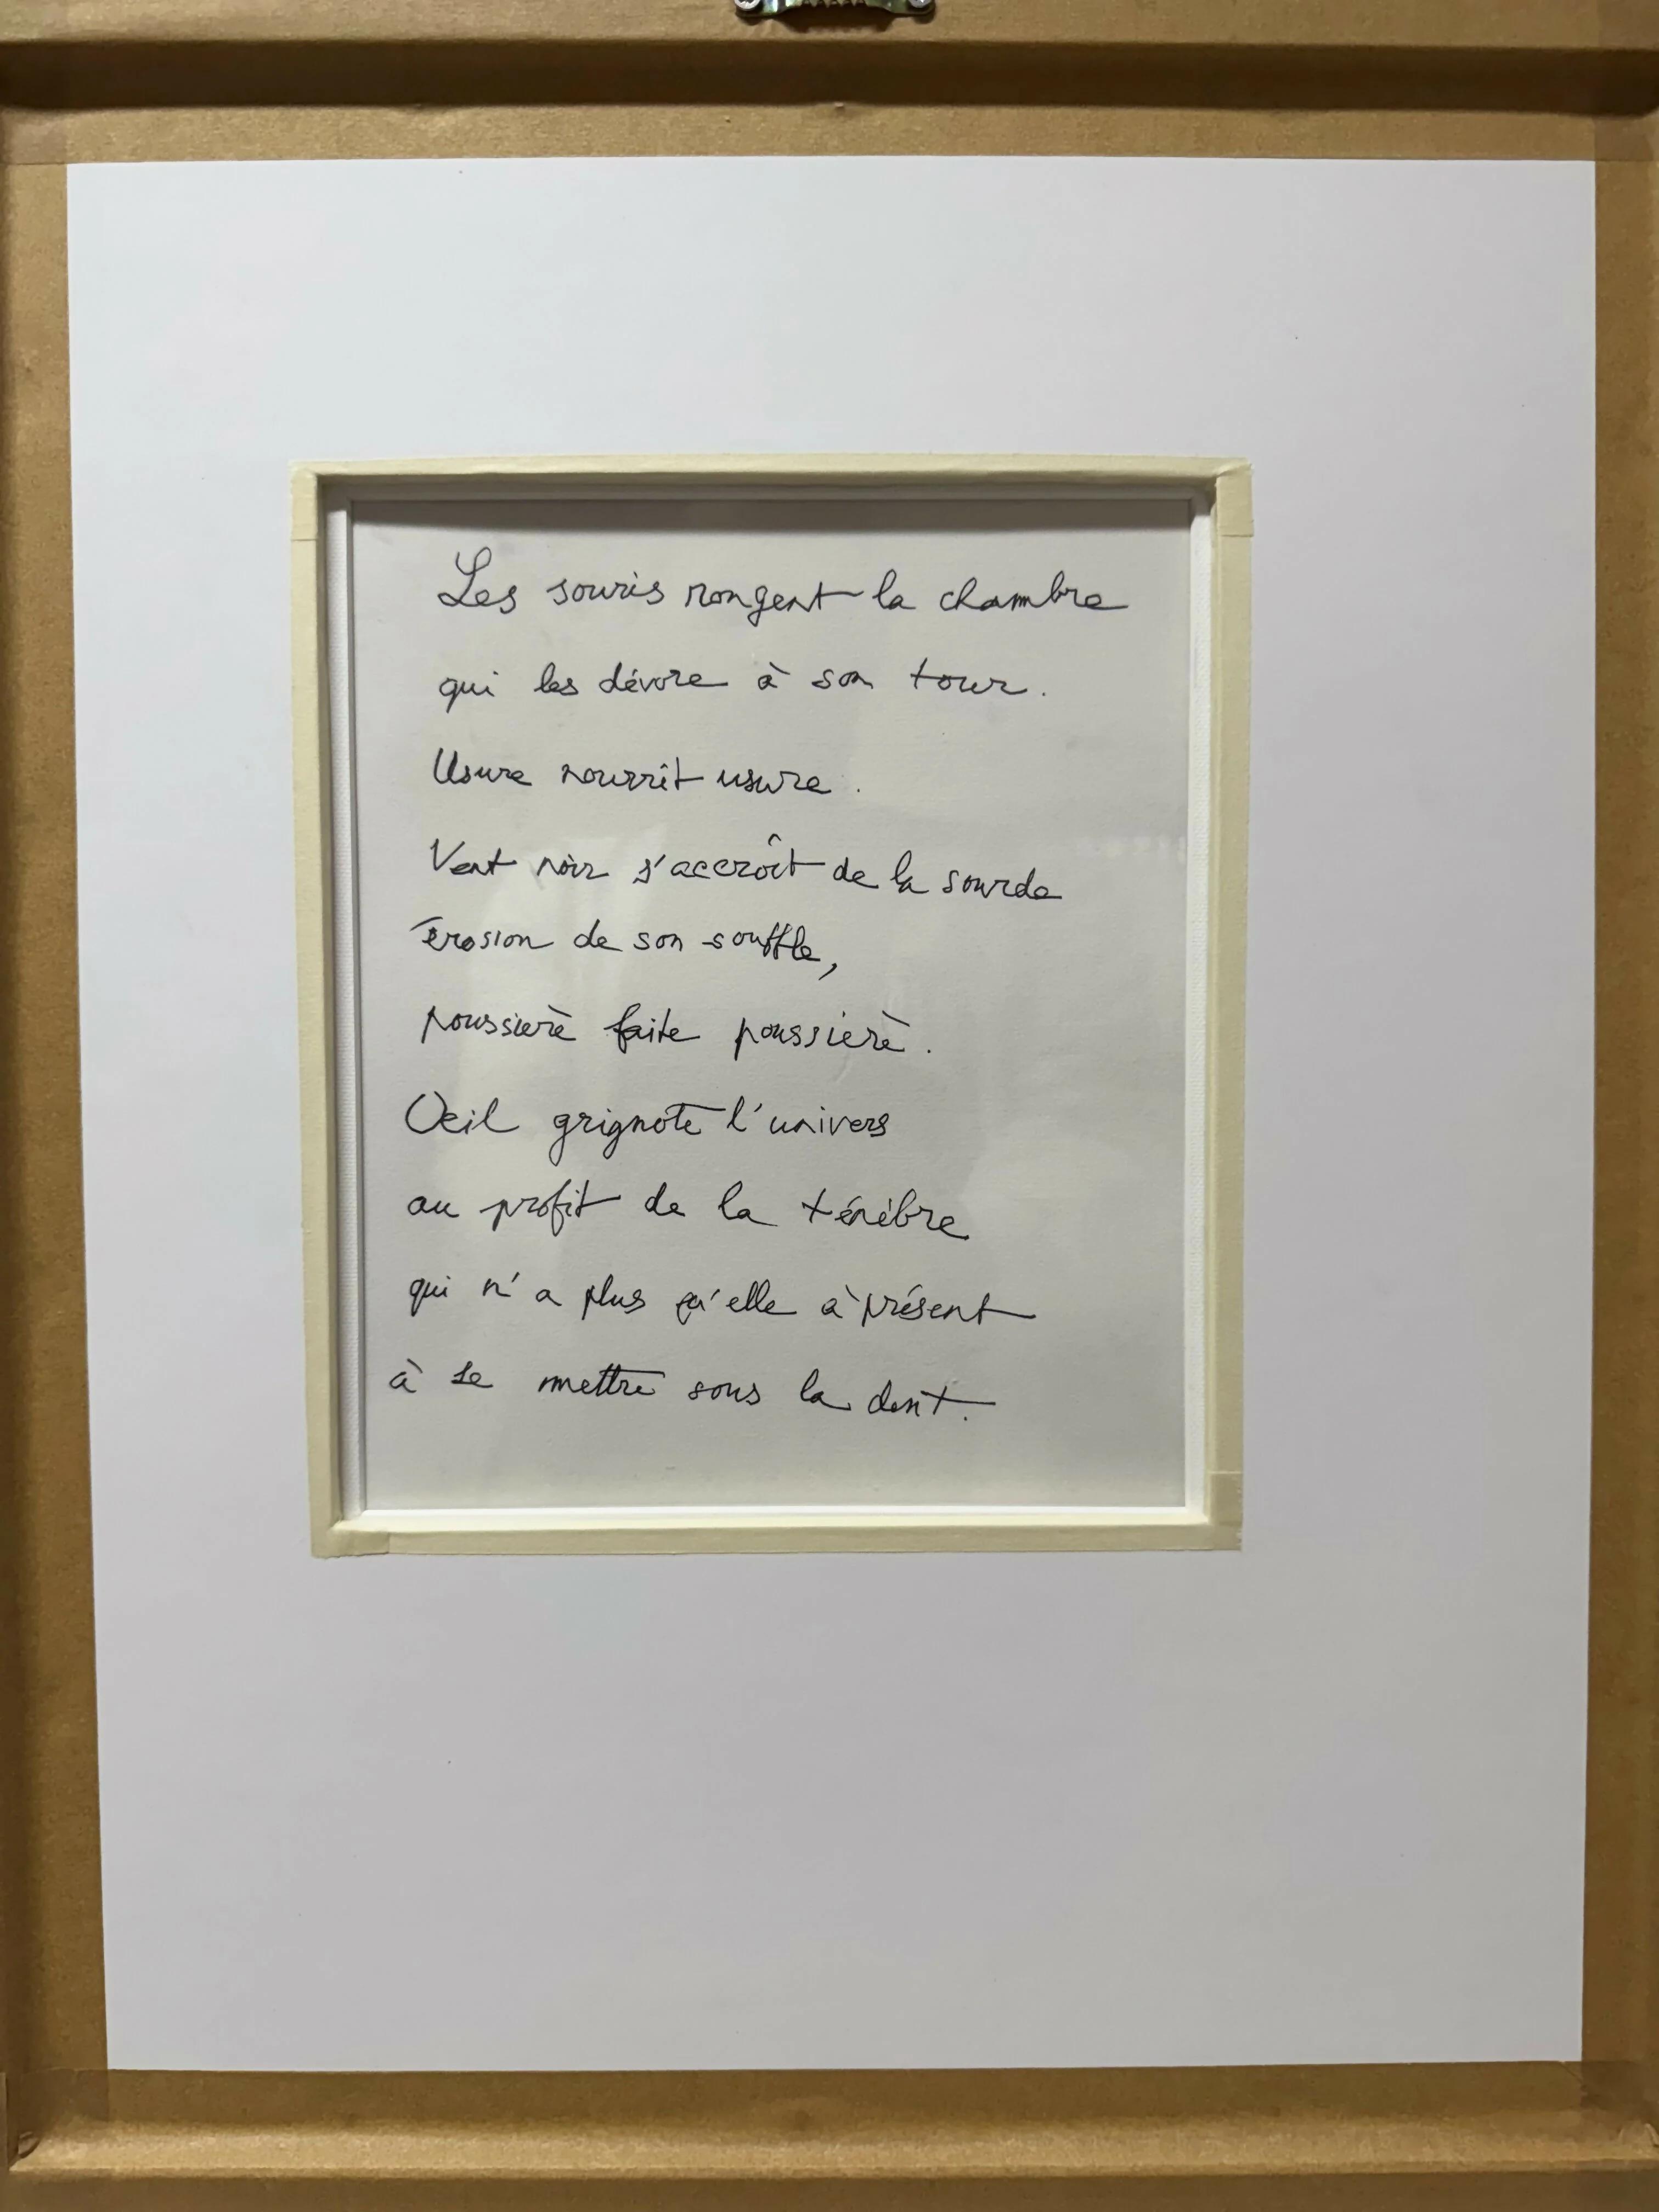 Les souris rongent la chambre
qui les dévore à son tour.
Usure nourrit usure.
Vent noir s'accroît de la sourde
érosion de son souffle,
poussière faite poussière.
Oeil grignote l'univers
au profit de la ténèbre
qui n'a plus qu'elle à présent
à se mettre sous la dent.